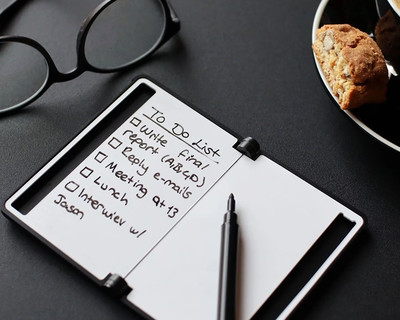 To Do List
Write final
report (A,B&D)
Reply e-mails
Meeting at 13
Lunch
Interview w/
Jason